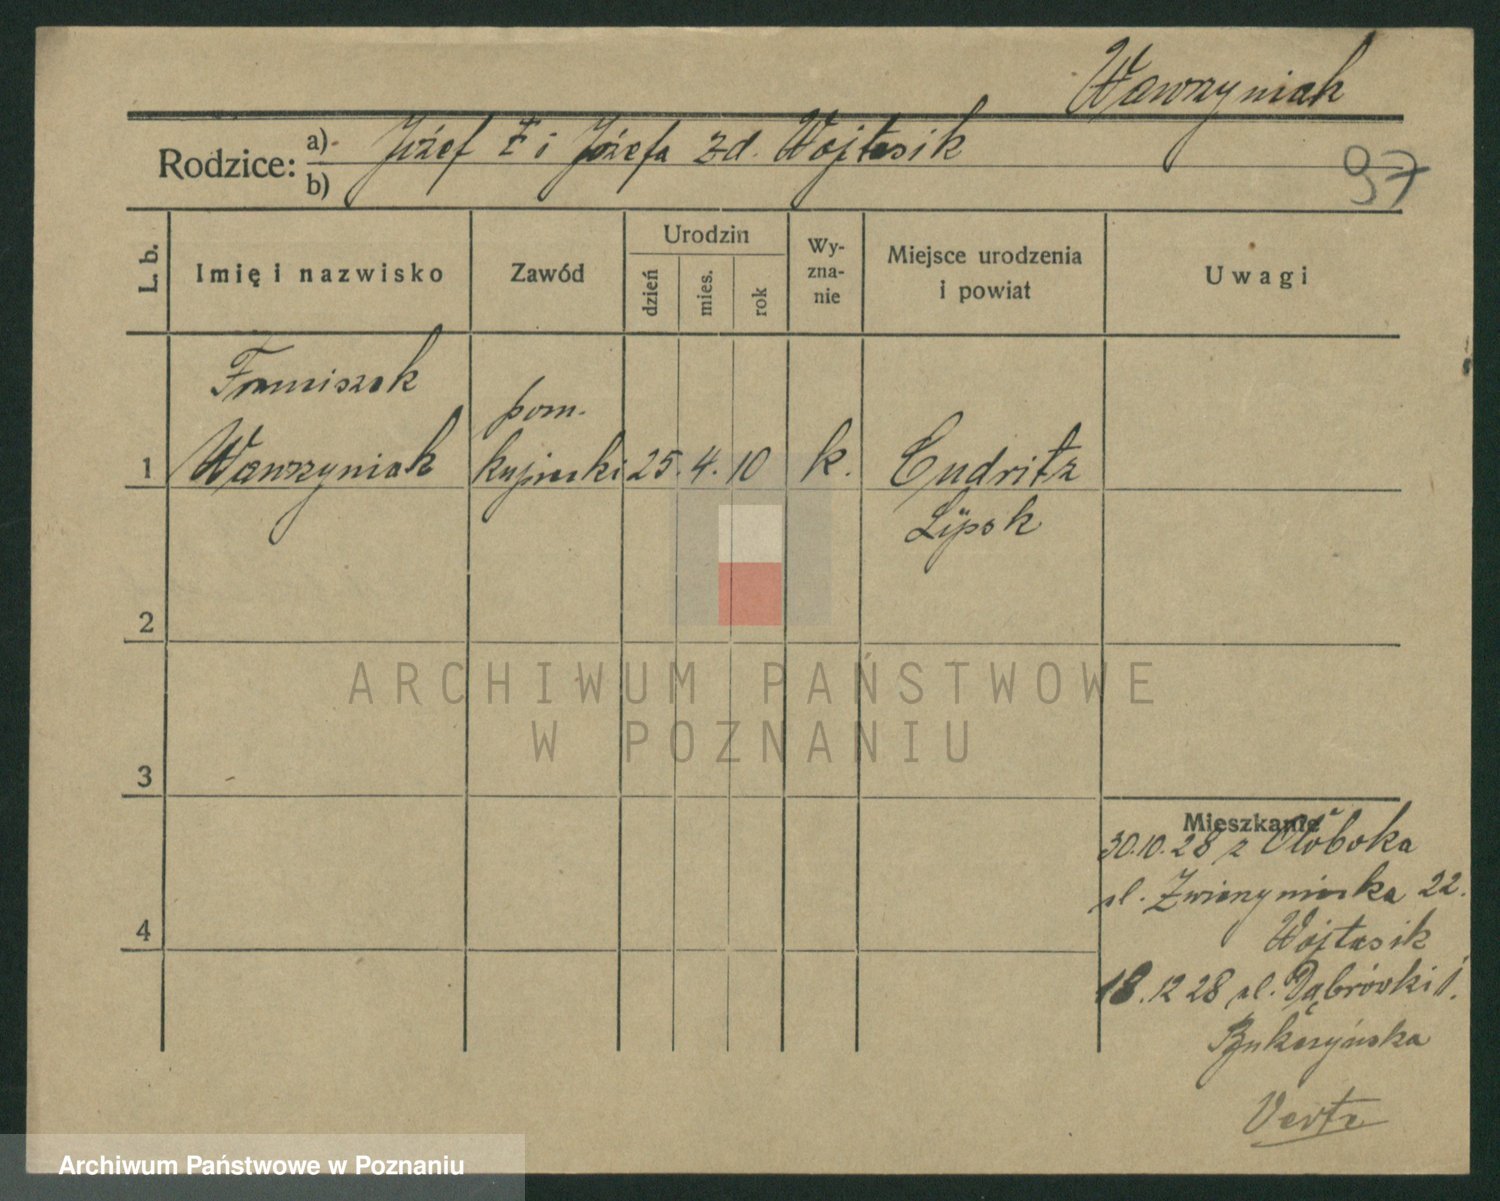 Wawrzyniak
Rodzice: a) Józef Ł i Józefa zd. Wojtasik
b)
97
L. b.
Imię i nazwisko
Zawód
Urodzin
dzień
mies.
rok
Wy-
zna-
nie
Miejsce urodzenia
i powiat
Uwagi
Franciszek
pom.
1 Wawrzyniak kupiecki 25. 4. 10 k. Cudritz
Lipsk
2
ARCHIWUM PAŃSTWOWE
W POZNANIU
3
Mieszkanie
30.10.28 z Ołoboka
ul. Zwierzyniecka 22.
Wojtasik
4
18.12 28 ul. Dąbrówki 1.
Verte
Archiwum Państwowe w Poznaniu